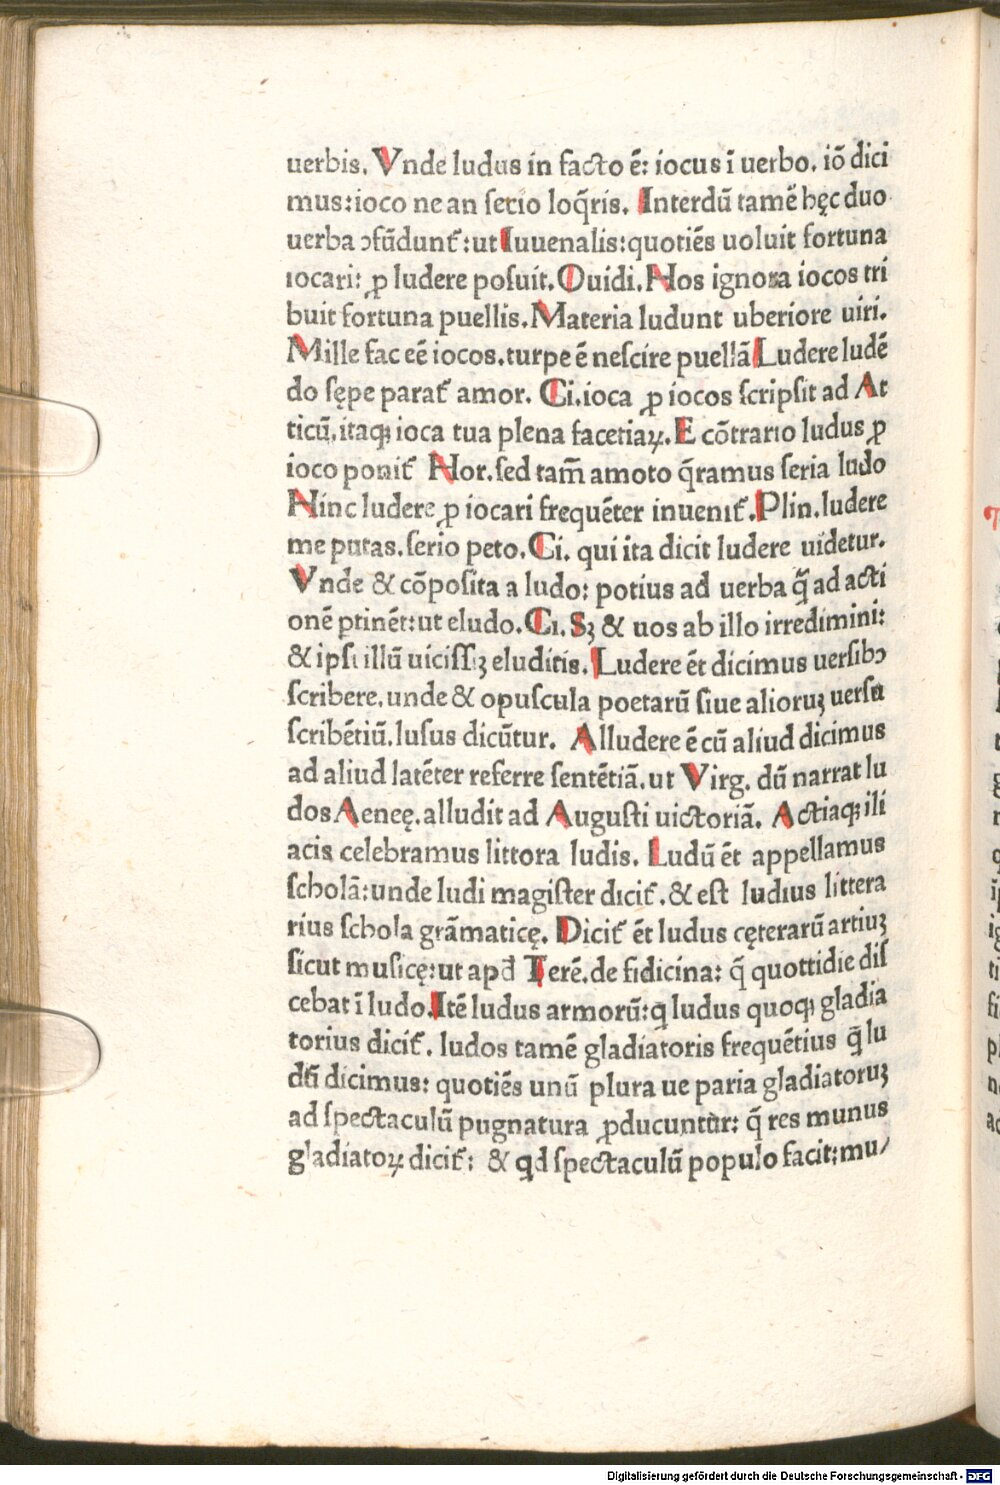 uerbis. Vnde ludus in facto ē: iocus ī uerbo. iō dici
mus: ioco ne an serio loq̄ris. Interdū tamē hęc duo
uerba ↄfūdunt᷒: ut Iuuenalis: quotiēs uoluit fortuna
iocari: ꝓ ludere posuit. Ouidi. Nos ignora iocos tri
buit fortuna puellis. Materia ludunt uberiore uiri.
Mille fac eē iocos. turpe ē nescire puellā Ludere ludē
do sępe parat᷒ amor. Ci. ioca ꝓ iocos scripsit ad At
ticū. itaqꝫ ioca tua plena facetiaꝝ. E cōtrario ludus ꝓ
ioco ponit᷒ Hor. sed tam̄ amoto q̄ramus seria ludo
Hinc ludere ꝓ iocari frequēter inuenit᷒. Plin. ludere
me putas. serio peto. Ci. qui ita dicit ludere uidetur.
Vnde & cōposita a ludo: potius ad uerba q̄ ad acti
onē ptinēt: ut eludo. Ci. Sꝫ & uos ab illo irredimini:
& ipsi illū uicissiꝫ eluditis. Ludere ēt dicimus uersibↄ
scribere. unde & opuscula poetarū siue alioruꝫ uersu
scribētiū. lusus dicūtur. Alludere ē cū aliud dicimus
ad aliud latēter referre sentētiā. ut Virg. dū narrat lu
dos Aeneę. alludit ad Augusti uictoriā. Actiaqꝫ ili
acis celebramus littora ludis. Ludū ēt appellamus
scholā: unde ludi magister dicit᷒. & est ludius littera
rius schola grāmaticę. Dicit᷒ ēt ludus cęterarū artiuꝫ
sicut musicę: ut apđ Terē. de fidicina: q̄ quottidie dis
cebat ī ludo. Itē ludus armorū: q ludus quoqꝫ gladia
torius dicit᷒. ludos tamē gladiatoris frequētius q̄ lu
dū dicimus: quotiēs unū plura ue paria gladiatoruꝫ
ad spectaculū pugnatura ꝓducuntur: q̄ res munus
gladiatoꝝ dicit᷒: & qd spectaculū populo facit: mu/
Digitalisierung gefördert durch die Deutsche Forschungsgemeinschaft - DFG